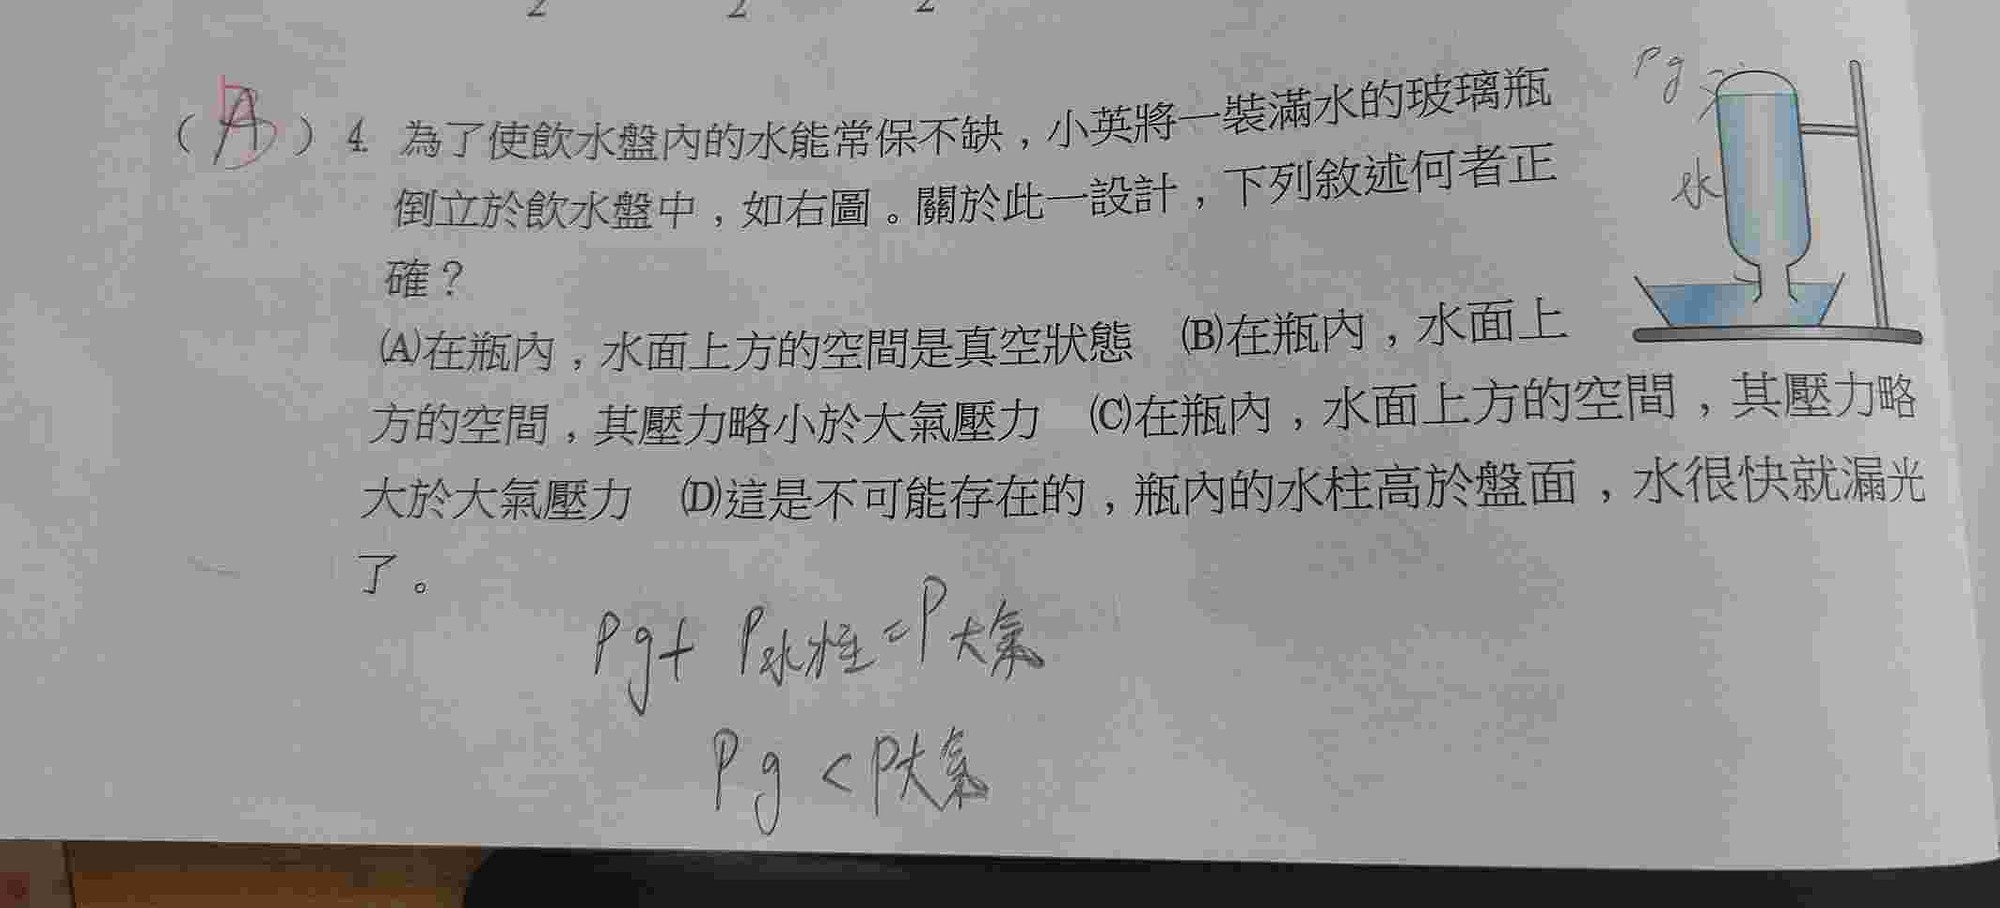 2 2 2
Pg
( A ) 4. 為了使飲水盤內的水能常保不缺，小英將一裝滿水的玻璃瓶
水
倒立於飲水盤中，如右圖。關於此一設計，下列敘述何者正
確？
(A)在瓶內，水面上方的空間是真空狀態 (B)在瓶內，水面上
方的空間，其壓力略小於大氣壓力 (C)在瓶內，水面上方的空間，其壓力略
大於大氣壓力 (D)這是不可能存在的，瓶內的水柱高於盤面，水很快就漏光
了。
Pg+ P水柱=P大氣
Pg < P大氣